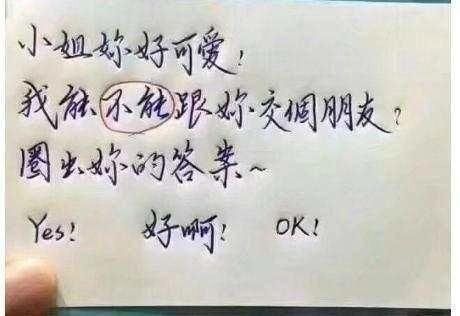 小姐妳好可爱！
我能不能跟妳交個朋友？
圈出妳的答案~
Yes! 好啊! OK!